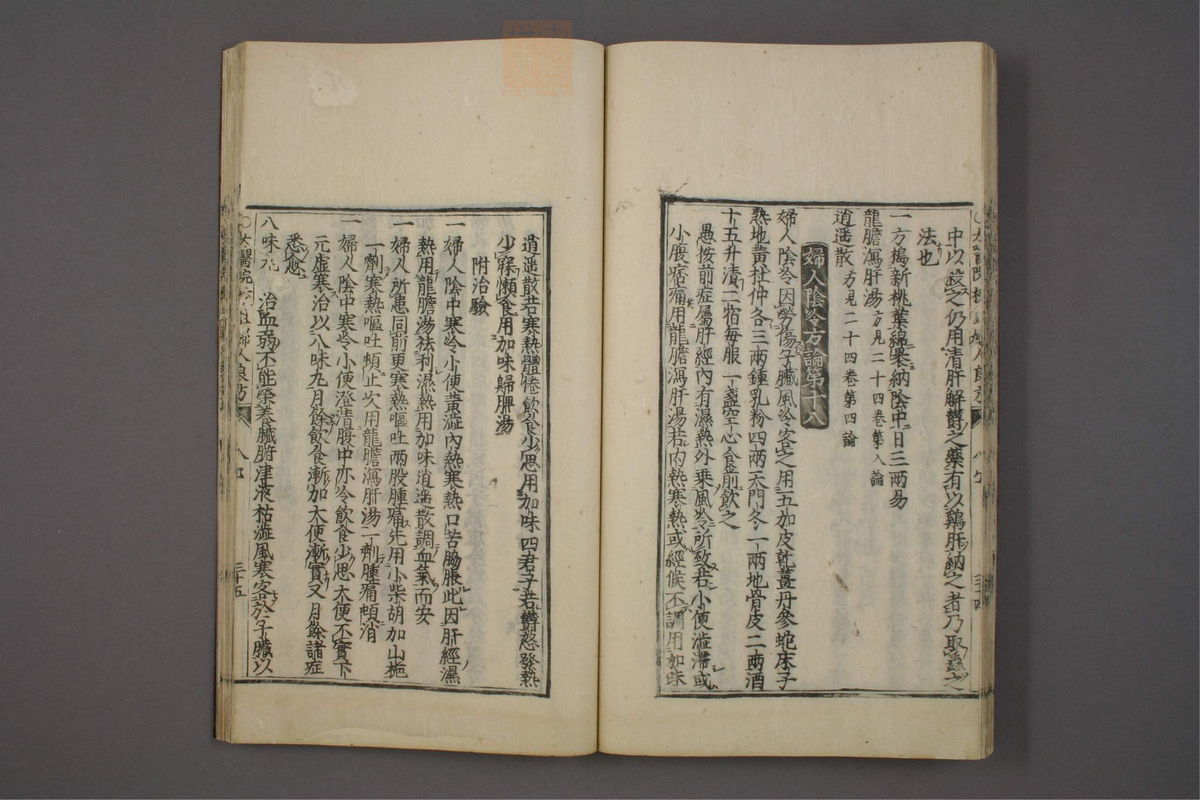 中以殺之仍用清肝解欝之藥有以鶏肝納之者乃取蟲之
法也
一方搗新桃葉綿裹納陰中日三兩易
龍膽瀉肝湯方見二十四卷第八論
逍遥散方見二十四卷第四論
婦人陰冷方論第十八
婦人陰冷因勞傷子臟風冷客之用五加皮乾薑丹參蛇床子
熟地黄杜仲各三兩鍾乳粉四兩天門冬一兩地骨皮二兩酒
十五升漬二宿毎服一盞空心食前飲之
愚按前症屬肝經內有濕熱外乘風冷所致若小便澁滯或
小腹痞痛用龍膽瀉肝湯若內熱寒熱或經候不調用加味
逍遥散若寒熱體倦飲食少思用加味四君子若欝怒發熱
少寐懶食用加味歸脾湯
附治驗
一婦人陰中寒冷小便黄澁內熱寒熱口苦脇脹此因肝經濕
熱用龍膽湯祛利濕熱用加味逍遥散調血氣而安
一婦人所患同前更寒熱嘔吐兩股腫痛先用小柴胡加山梔
一劑寒熱嘔吐頓止次用龍膽瀉肝湯二劑腫痛頓消
一婦人陰中寒冷小便澄清腹中亦冷飲食少思大便不實下
元虚寒治以八味丸月餘飲食漸加大便漸實又月餘諸症
悉愈
八味丸 治血弱不能榮養臟腑津液枯澁風寒客於子臟以
三十五